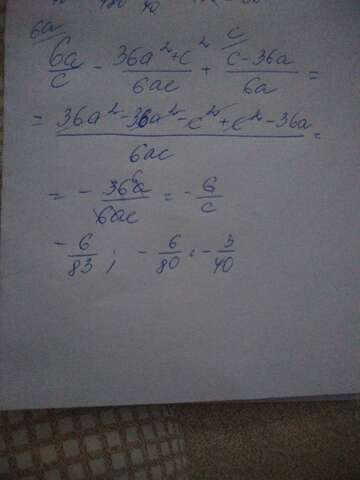 6a c
6a/c - (36a²+c²)/6ac + (c-36a)/6a =
= (36a²-36a²-c²+c²-36a)/6ac =
= - 36a/6ac = - 6/c
- 6/83 ; - 6/80 = - 3/40